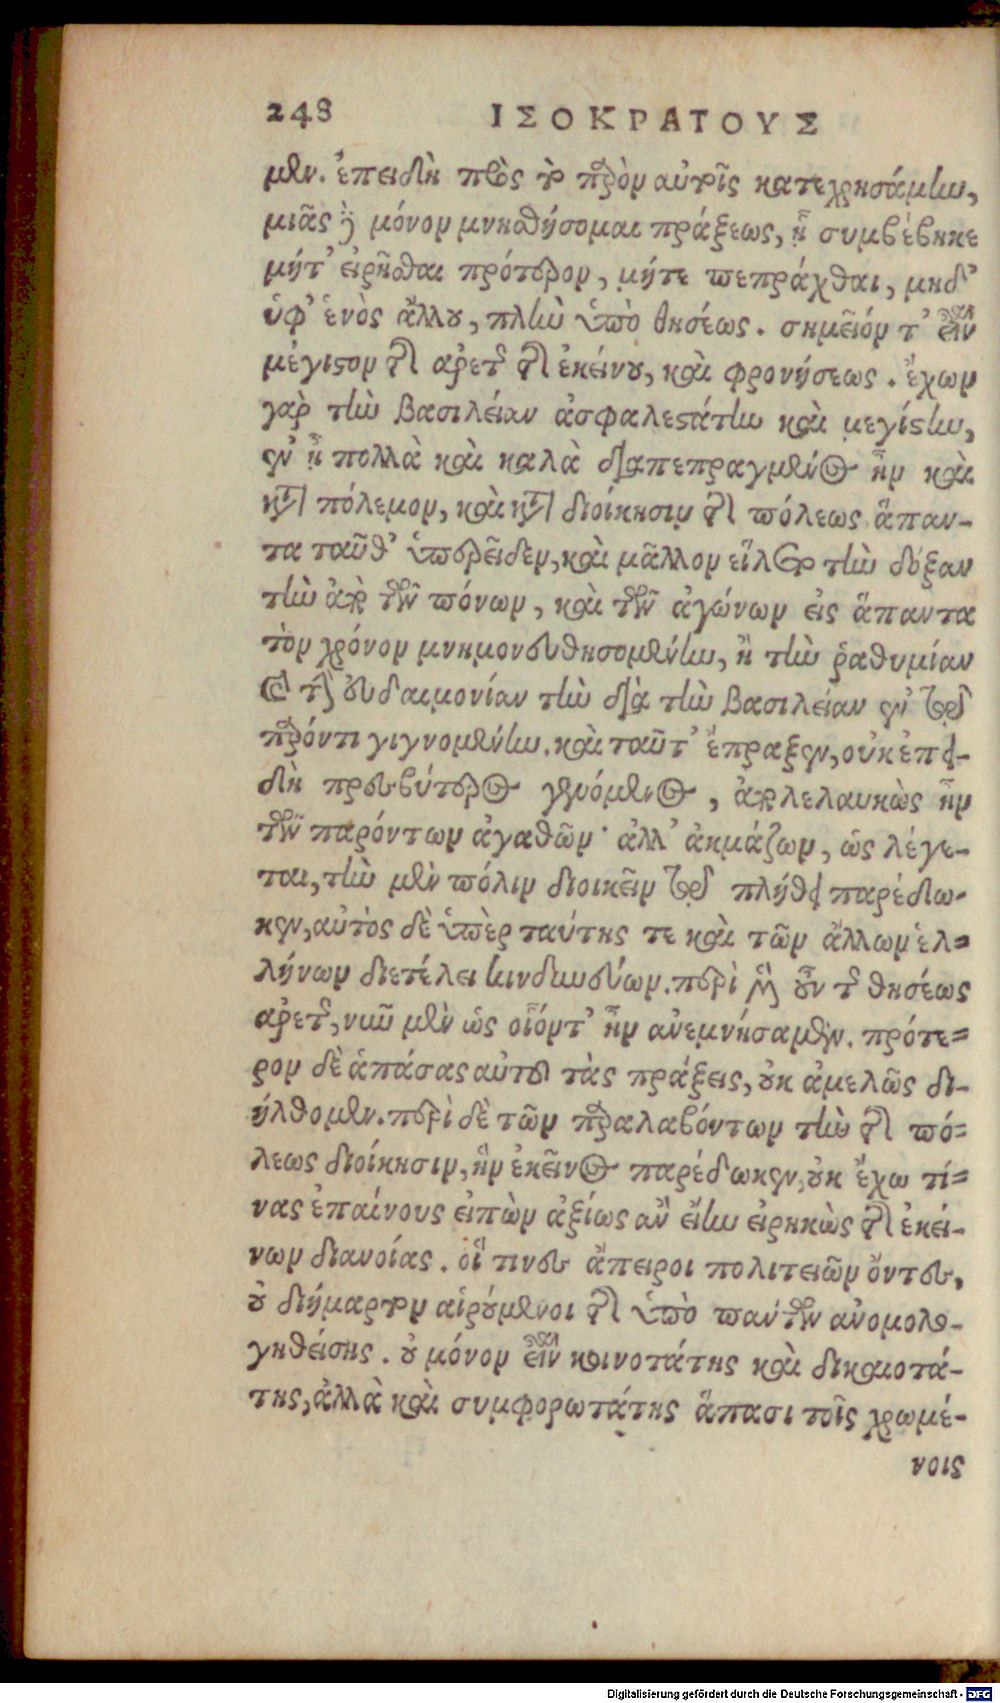 248 ΙΣΟΚΡΑΤΟΥΣ
μεν. ἐπειδὴ πρὸς τὸ παρὸν αὐτοῖς κατεχρησάμην,
μιᾶς δὲ μόνον μνησθήσομαι πράξεως, ᾗ συμβέβηκε
μήτ' εἰρῆσθαι πρότερον, μήτε πεπράχθαι, μηδ'
ὑφ' ἑνὸς ἄλλου, πλὴν ὑπὸ θησέως. σημεῖόν τ' εἶναι
μέγιστον τῆς ἀρετῆς τῆς ἐκείνου, καὶ φρονήσεως. ἔχων
γὰρ τὴν βασιλείαν ἀσφαλεστάτην καὶ μεγίστην,
ἐν ᾗ πολλὰ καὶ καλὰ διαπεπραγμένος ἦν καὶ
κατὰ πόλεμον, καὶ κατὰ διοίκησιν τῆς πόλεως ἅπαν-
τα ταῦθ' ὑπερεῖδεν, καὶ μᾶλλον εἵλετο τὴν δόξαν
τὴν ἀπὸ τῶν πόνων, καὶ τῶν ἀγώνων εἰς ἅπαντα
τὸν χρόνον μνημονευθησομένην, ἢ τὴν ῥαθυμίαν
καὶ τὴν εὐδαιμονίαν τὴν διὰ τὴν βασιλείαν ἐν τῷ
παρόντι γιγνομένην. καὶ ταῦτ' ἔπραξεν, οὐκ ἐπει-
δὴ πρεσβύτερος γενόμενος, ἀπολελαυκὼς ἦν
τῶν παρόντων ἀγαθῶν· ἀλλ' ἀκμάζων, ὡς λέγε-
ται, τὴν μὲν πόλιν διοικεῖν τῷ πλήθει παρέδω-
κεν, αὐτὸς δὲ ὑπὲρ ταύτης τε καὶ τῶν ἄλλων ἑλ-
λήνων διετέλει κινδυνεύων. περὶ μὲν οὖν τῆς θησέως
ἀρετῆς, νῦν μὲν ὡς οἷόντ' ἦν ἀνεμνήσαμεν. πρότε-
ρον δὲ ἁπάσας αὐτοῦ τὰς πράξεις, οὐκ ἀμελῶς δι-
ήλθομεν. περὶ δὲ τῶν παραλαβόντων τὴν τῆς πό-
λεως διοίκησιν, ἣν ἐκεῖνος παρέδωκεν, οὐκ ἔχω τί-
νας ἐπαίνους εἰπὼν ἀξίως ἂν εἴην εἰρηκὼς τῆς ἐκεί-
νων διανοίας. οἵ τινες ἄπειροι πολιτειῶν ὄντες,
οὐ διήμαρτον αἱρούμενοι τῆς ὑπὸ πάντων ἀνομολο-
γηθείσης. οὐ μόνον εἶναι κοινοτάτης καὶ δικαιοτά-
της, ἀλλὰ καὶ συμφορωτάτης ἅπασι τοῖς χρωμέ-
νοις
Digitalisierung gefördert durch die Deutsche Forschungsgemeinschaft - DFG